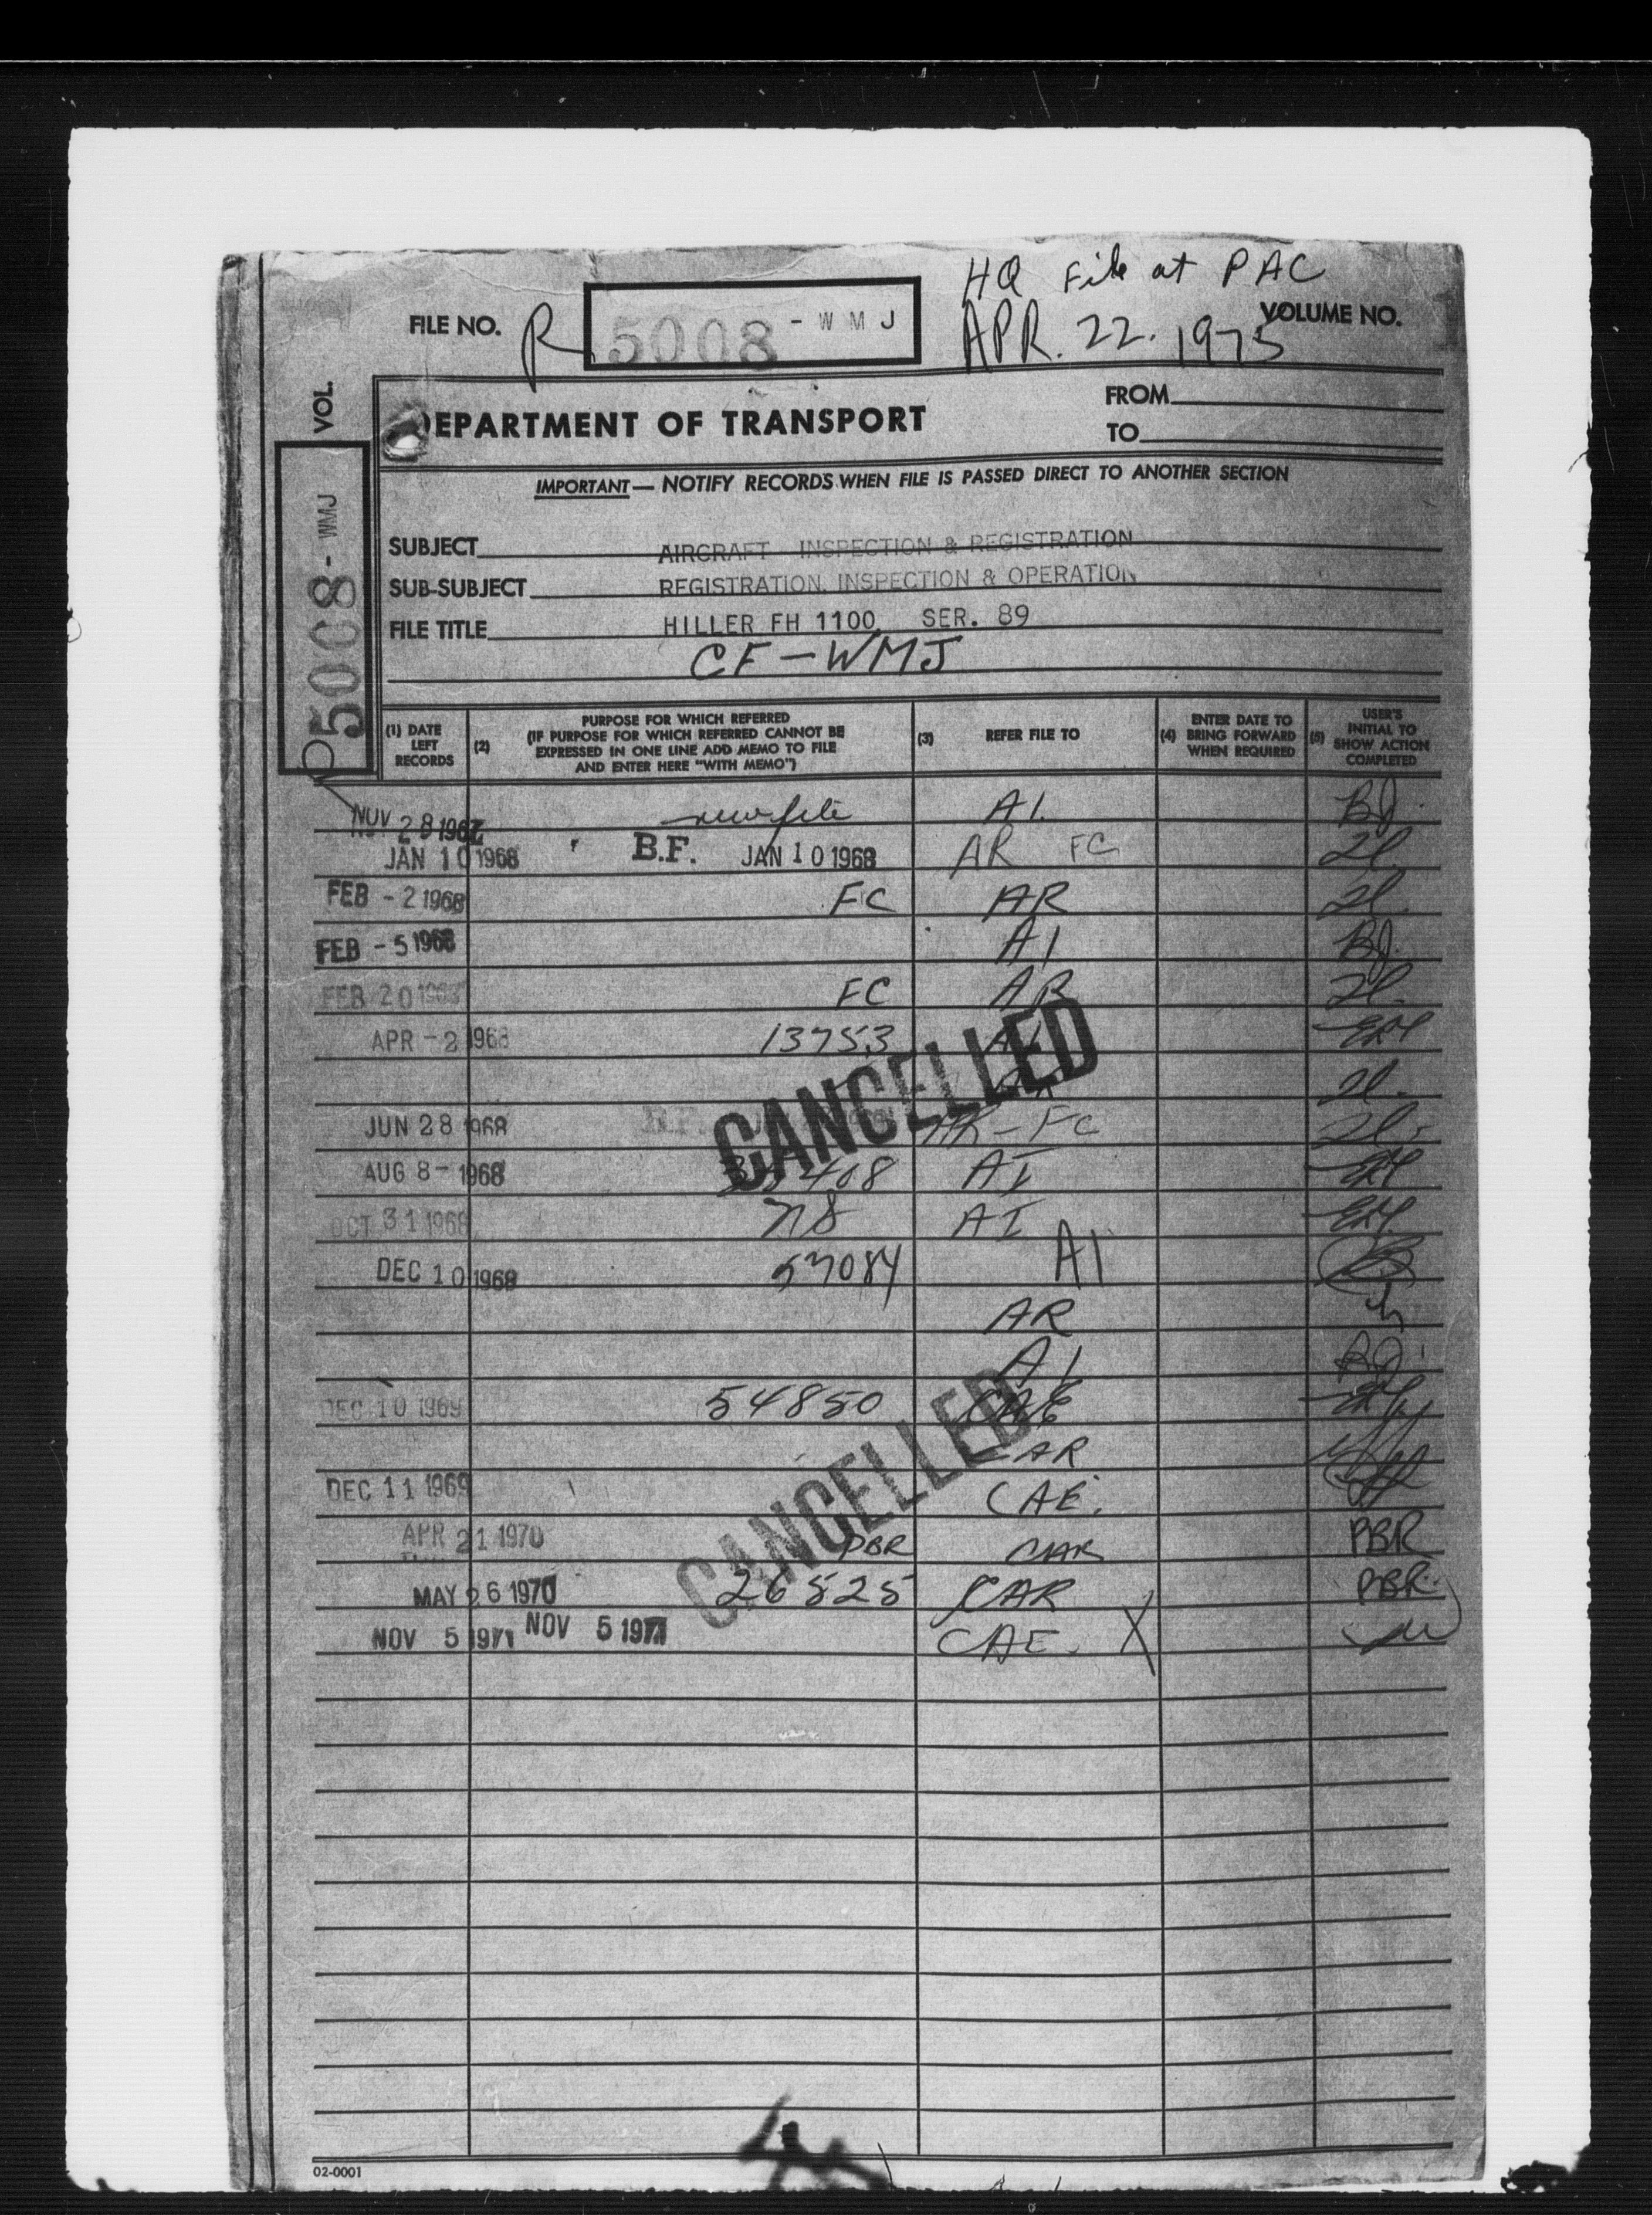 HQ File at PAC
FILE NO. R 5008 - WMJ APR. 22. 1975 VOLUME NO.
VOL.
5008 - WMJ
DEPARTMENT OF TRANSPORT
FROM
TO
IMPORTANT — NOTIFY RECORDS WHEN FILE IS PASSED DIRECT TO ANOTHER SECTION
SUBJECT AIRCRAFT INSPECTION & REGISTRATION
SUB-SUBJECT REGISTRATION, INSPECTION & OPERATION
FILE TITLE HILLER FH 1100 SER. 89
CF-WMJ
(1) DATE LEFT RECORDS
(2) PURPOSE FOR WHICH REFERRED (IF PURPOSE FOR WHICH REFERRED CANNOT BE EXPRESSED IN ONE LINE ADD MEMO TO FILE AND ENTER HERE "WITH MEMO")
(3) REFER FILE TO
(4) ENTER DATE TO BRING FORWARD WHEN REQUIRED
(5) USER'S INITIAL TO SHOW ACTION COMPLETED
NOV 28 1967 new file AI
JAN 10 1968 B.F. JAN 10 1968 AR FC
FEB - 2 1968 FC AR
FEB - 5 1968 AI
FEB 20 1968 FC AR
APR - 2 1968 13753
CANCELLED
JUN 28 1968 B.F. AR - FC
AUG 8 - 1968 AI
OCT 31 1968 AI
DEC 10 1968 57084 AI
AR
AI
DEC 10 1969 54850 CAE
CAR
CANCELLED
DEC 11 1969 CAE.
APR 21 1970 PBR CAR PBR
MAY 26 1970 26525 CAR PBR
NOV 5 1971 NOV 5 1971 CAE. X
02-0001